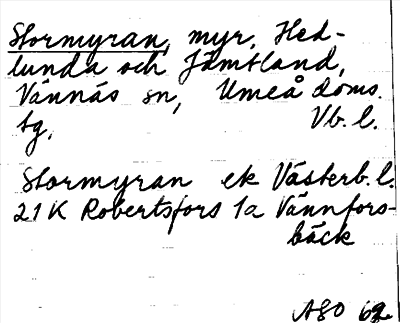 Stormyran, myr, Hed-
lunda och Jämtland,
Vännäs sn, Umeå doms.
tg, Vb. l.
Stormyran ek Västerb. l.
21 K Robertsfors 1a Vännfors-
bäck
ASO 62